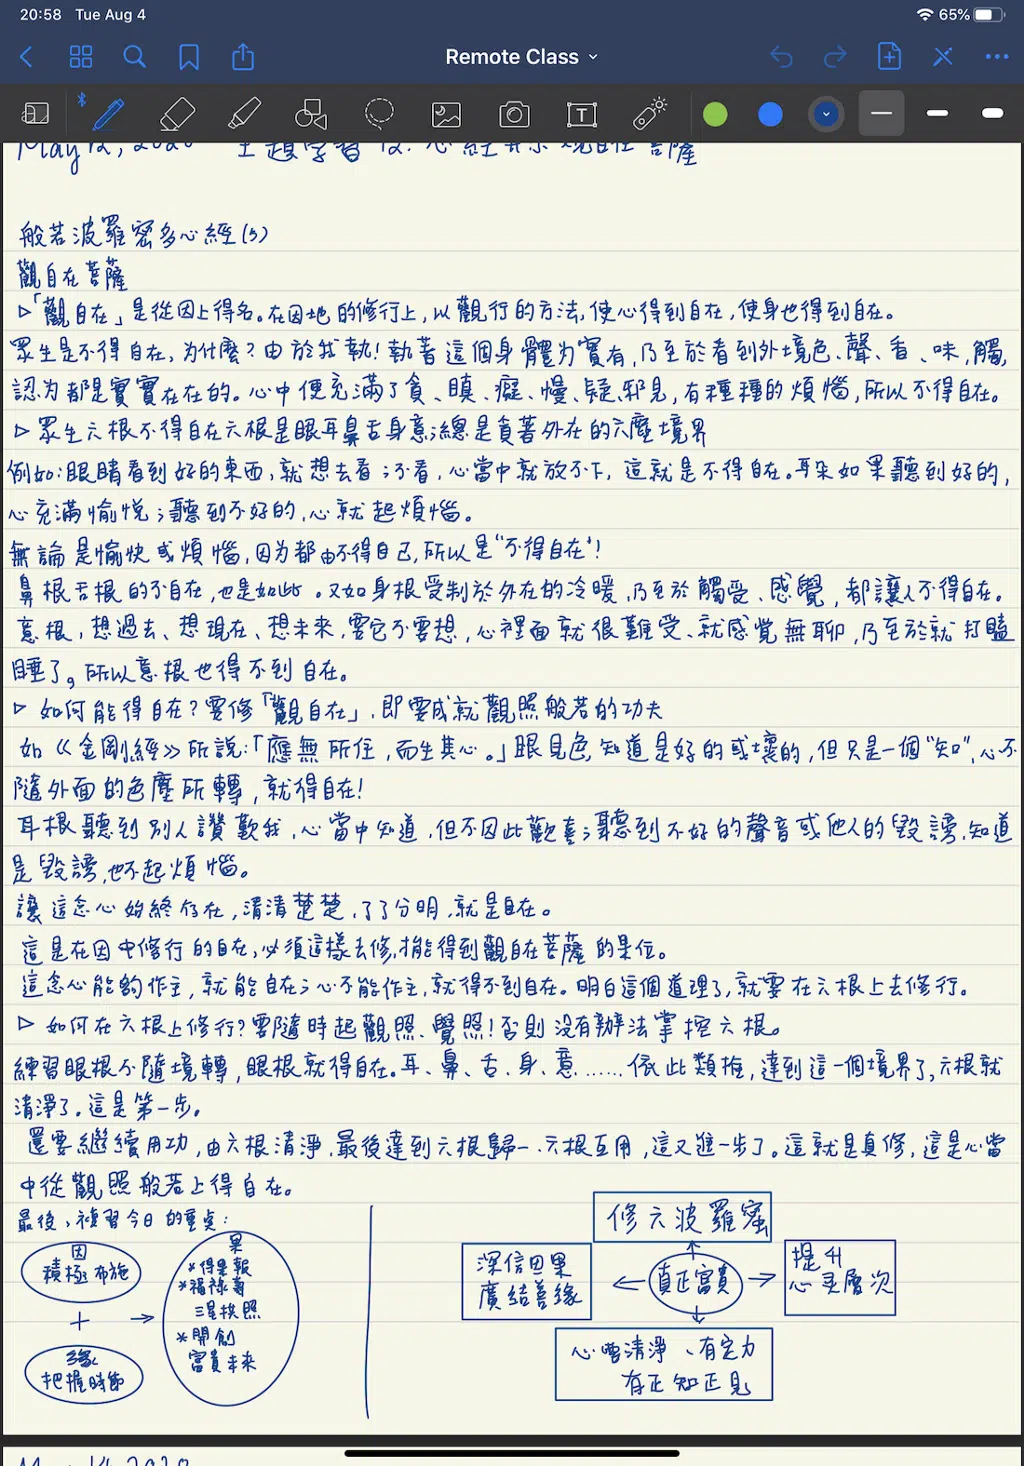 20:58 Tue Aug 4
65%
Remote Class
May 12, 2020 主題學習 心經 觀自在菩薩
般若波羅密多心經(3)
觀自在菩薩
▷「觀自在」是從因上得名。在因地的修行上,以觀行的方法,使心得到自在,使身也得到自在。
眾生是不得自在,为什麼?由於我執!執著這個身體为實有,乃至於看到外境色、聲、香、味,觸,
認为都是實實在在的。心中便充滿了貪、瞋、癡、慢、疑、邪見,有種種的煩惱,所以不得自在。
▷眾生六根不得自在六根是眼耳鼻舌身意;總是貪著外在的六塵境界
例如:眼睛看到好的東西,就想去看;不看,心當中就放不下,這就是不得自在。耳朵如果聽到好的,
心充滿愉悅;聽到不好的,心就起煩惱。
無論是愉快或煩惱,因为都由不得自己,所以是"不得自在"!
鼻根舌根的不自在,也是如此。又如身根受制於外在的冷暖,乃至於觸受、感覺,都讓人不得自在。
意根,想過去、想現在、想未來,要它不要想,心裡面就很難受、就感覺無聊,乃至於就打瞌
睡了。所以意根也得不到自在。
▷如何能得自在?要修「觀自在」,即要成就觀照般若的功夫
如《金剛經》所說:「應無所住,而生其心。」眼見色,知道是好的或壞的,但只是一個"知",心不
隨外面的色塵所轉,就得自在!
耳根聽到別人讚歎我,心當中知道,但不因此歡喜;聽到不好的聲音或他人的毀謗,知道
是毀謗,也不起煩惱。
讓這念心始終存在,清清楚楚,了了分明,就是自在。
這是在因中修行的自在,必須這樣去修,才能得到觀自在菩薩的果位。
這念心能夠作主,就能自在;心不能作主,就得不到自在。明白這個道理了,就要在六根上去修行。
▷如何在六根上修行?要隨時起觀照、覺照!否則沒有辦法掌控六根。
練習眼根不隨境轉,眼根就得自在。耳、鼻、舌、身、意……依此類推,達到這一個境界了,六根就
清淨了。這是第一步。
還要繼續用功,由六根清淨,最後達到六根歸一、六根互用,這又進一步了。這就是真修,這是心當
中從觀照般若上得自在。
最後,複習今日的重點:
因
積極布施
+
緣
把握時節
果
*得是報
*福祿壽
三星拱照
*開創
富貴未來
修六波羅蜜
深信因果
廣結善緣
真正富貴
提升
心灵層次
心要清淨、有定力
有正知正見